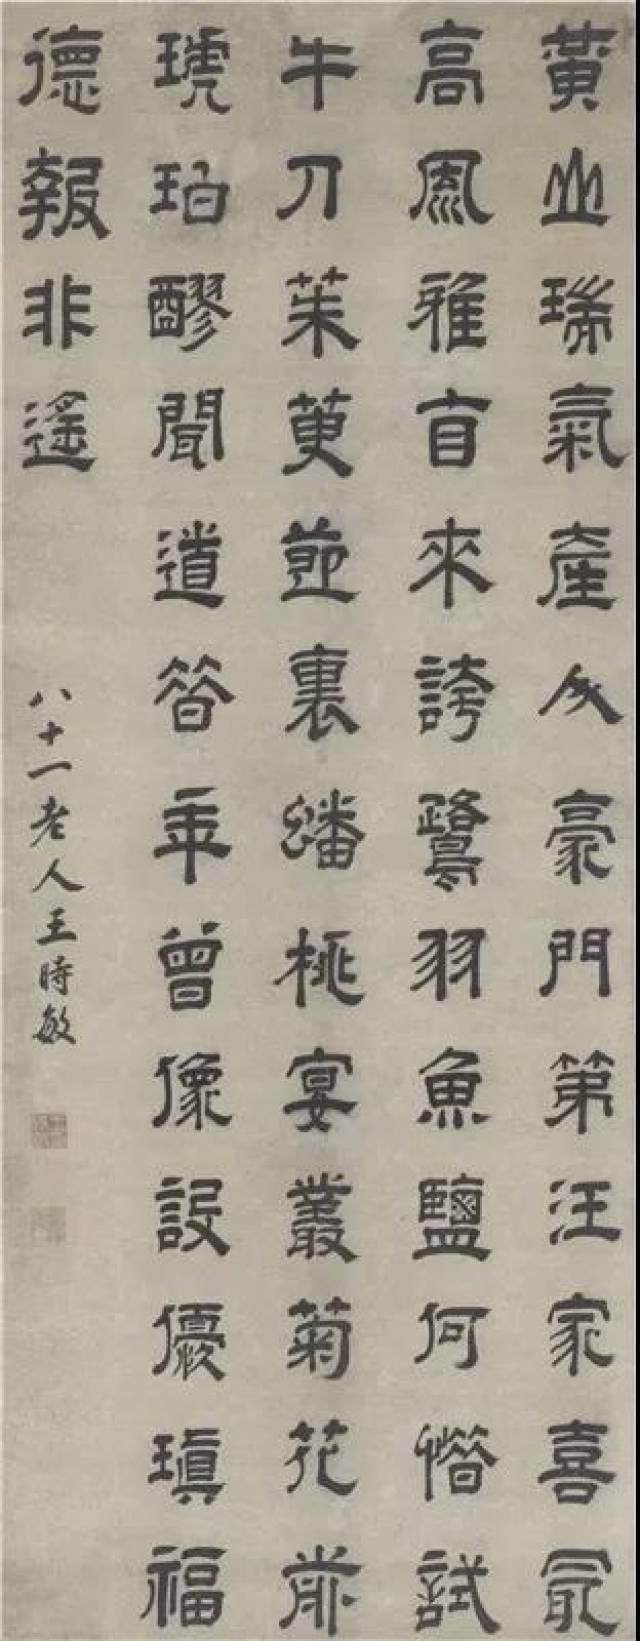 黃山瑞氣產人豪門第汪家喜冣
高風雅自來誇鷺羽魚鹽何惜試
牛刀茱萸節裏蟠桃宴叢菊花前
琥珀醪聞道昔年曾像設優瑱福
德報非遙
八十一老人王時敏